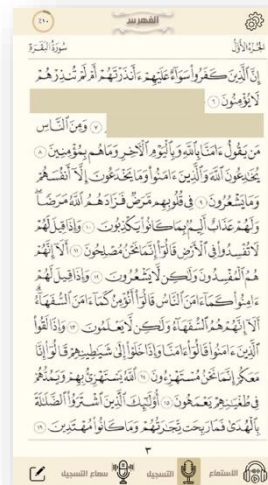 الفهرس
الجزء الأول
سورة البقرة
إِنَّ ٱلَّذِينَ كَفَرُوا۟ سَوَآءٌ عَلَيْهِمْ ءَأَنذَرْتَهُمْ أَمْ لَمْ تُنذِرْهُمْ
لَا يُؤْمِنُونَ ٦
٧ وَمِنَ ٱلنَّاسِ
مَن يَقُولُ ءَامَنَّا بِٱللَّهِ وَبِٱلْيَوْمِ ٱلْـَٔاخِرِ وَمَا هُم بِمُؤْمِنِينَ ٨
يُخَـٰدِعُونَ ٱللَّهَ وَٱلَّذِينَ ءَامَنُوا۟ وَمَا يَخْدَعُونَ إِلَّآ أَنفُسَهُمْ
وَمَا يَشْعُرُونَ ٩ فِى قُلُوبِهِم مَّرَضٌ فَزَادَهُمُ ٱللَّهُ مَرَضًا ۖ
وَلَهُمْ عَذَابٌ أَلِيمٌۢ بِمَا كَانُوا۟ يَكْذِبُونَ ١٠ وَإِذَا قِيلَ لَهُمْ
لَا تُفْسِدُوا۟ فِى ٱلْأَرْضِ قَالُوٓا۟ إِنَّمَا نَحْنُ مُصْلِحُونَ ١١ أَلَآ إِنَّهُمْ
هُمُ ٱلْمُفْسِدُونَ وَلَـٰكِن لَّا يَشْعُرُونَ ١٢ وَإِذَا قِيلَ لَهُمْ
ءَامِنُوا۟ كَمَآ ءَامَنَ ٱلنَّاسُ قَالُوٓا۟ أَنُؤْمِنُ كَمَآ ءَامَنَ ٱلسُّفَهَآءُ ۗ
أَلَآ إِنَّهُمْ هُمُ ٱلسُّفَهَآءُ وَلَـٰكِن لَّا يَعْلَمُونَ ١٣ وَإِذَا لَقُوا۟
ٱلَّذِينَ ءَامَنُوا۟ قَالُوٓا۟ ءَامَنَّا وَإِذَا خَلَوْا۟ إِلَىٰ شَيَـٰطِينِهِمْ قَالُوٓا۟ إِنَّا
مَعَكُمْ إِنَّمَا نَحْنُ مُسْتَهْزِءُونَ ١٤ ٱللَّهُ يَسْتَهْزِئُ بِهِمْ وَيَمُدُّهُمْ
فِى طُغْيَـٰنِهِمْ يَعْمَهُونَ ١٥ أُو۟لَـٰٓئِكَ ٱلَّذِينَ ٱشْتَرَوُا۟ ٱلضَّلَـٰلَةَ
بِٱلْهُدَىٰ فَمَا رَبِحَت تِّجَـٰرَتُهُمْ وَمَا كَانُوا۟ مُهْتَدِينَ ١٦
٣
الاستماع
التسجيل
سماع التسجيل